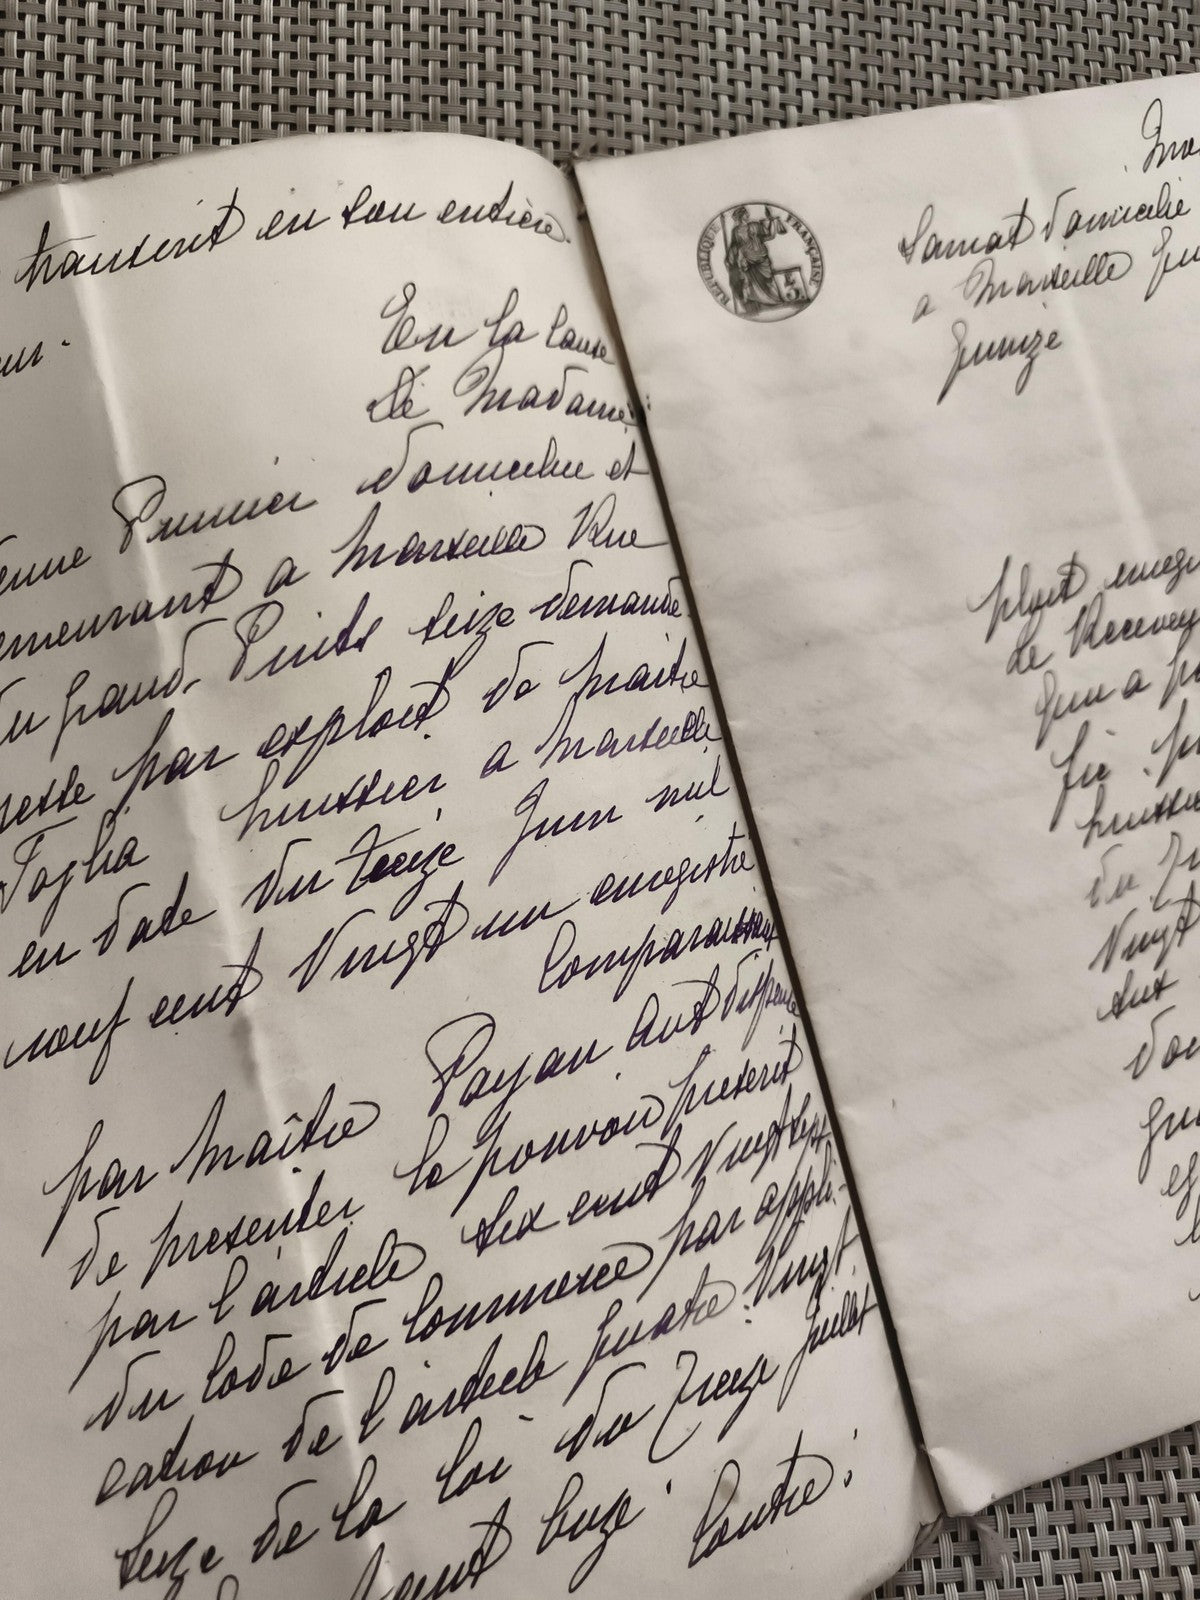 transcrit en son entière.
eur.
En la cause
de Madame
enne Prunier domiciliée et
emeurant a Marseille Rue
du grand Puits seize demande.
resse par exploit de Maitre
Foglia huissier a Marseille
en date du treize Juin mil
neuf cent vingt un enregistré
Comparaissant
par Maître Payan Avt dispensé
de presenter le pouvoir prescrit
par l'article six cent vingt sept
du Code de Commerce par appli-
cation de l'article quatre-vingt
seize de la loi du Treize Juillet
cent onze. Contre:
RÉPUBLIQUE FRANÇAISE
domicilié
a Marseille
Quinze
ploit enregi
le Receveu
huissie
du
Vingt